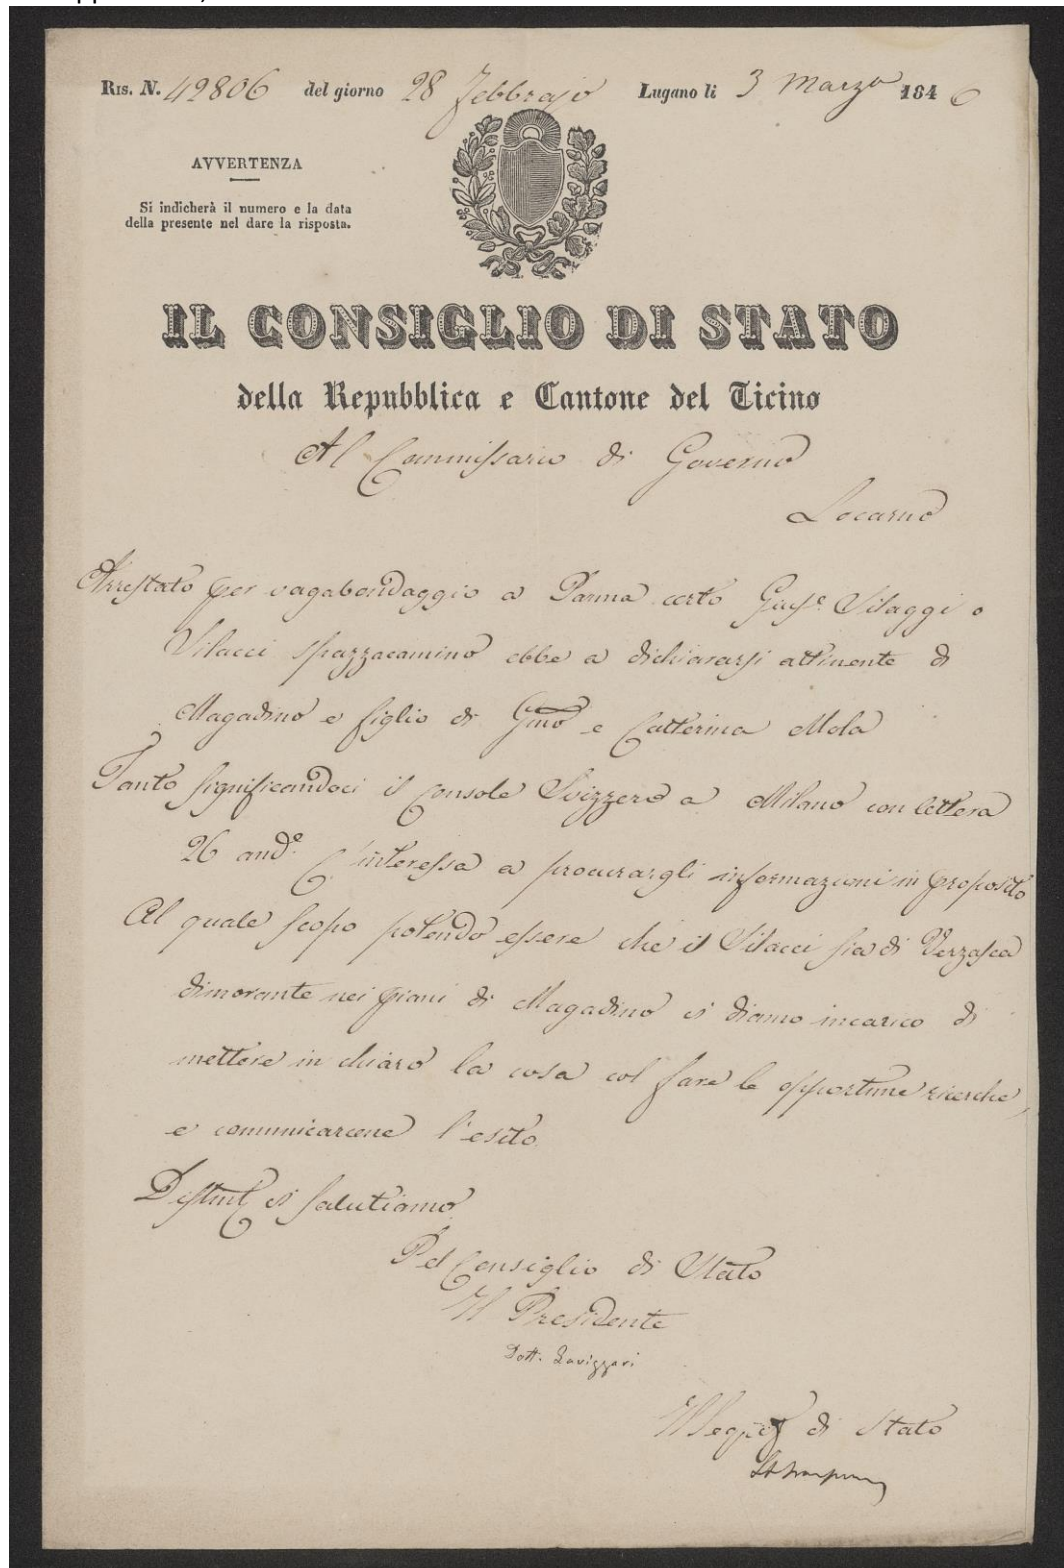 Ris. N. 42806 del giorno 28 Febbrajo Lugano li 3 Marzo 1846
AVVERTENZA
Si indicherà il numero e la data
della presente nel dare la risposta.
IL CONSIGLIO DI STATO
della Repubblica e Cantone del Ticino
Al Commissario di Governo
Locarno
Arrestato per vagabondaggio a Parma certo Gius.e Silaggi o
Silacci spazzacamino ebbe a dichiararsi attinente di
Magadino e figlio di Gmo e Catterina Mola
Tanto significandoci il Console Svizzero a Milano con lettera
26 and.e C'interessa a procurargli informazioni in proposito
Al quale scopo potendo essere che il Silacci sia di Verzasca
dimorante nei piani di Magadino vi diamo incarico di
mettere in chiaro la cosa col fare le opportune ricerche,
e comunicarcene l'esito
vi salutiamo
Pel Consiglio di Stato
Il Presidente
Dott. Lavizzari
Il di Stato